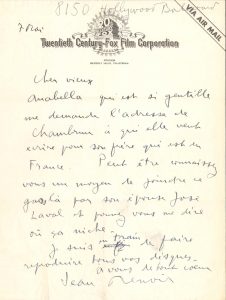 7 Mai
8150 Hollywood Boulevard
VIA AIR MAIL
Twentieth Century-Fox Film Corporation
STUDIOS
BEVERLY HILLS, CALIFORNIA
Cher vieux
Anabella qui est si gentille
me demande l'adresse de
Chambrun à qui elle veut
écrire pour son père qui est en
France. Peut être connaissez
vous un moyen de joindre ce
gas là par son épouse José
Laval et pouvez vous me dire
où ça niche.
Je suis en train de faire
reproduire tous vos disques.
à vous de tout cœur
Jean Renoir